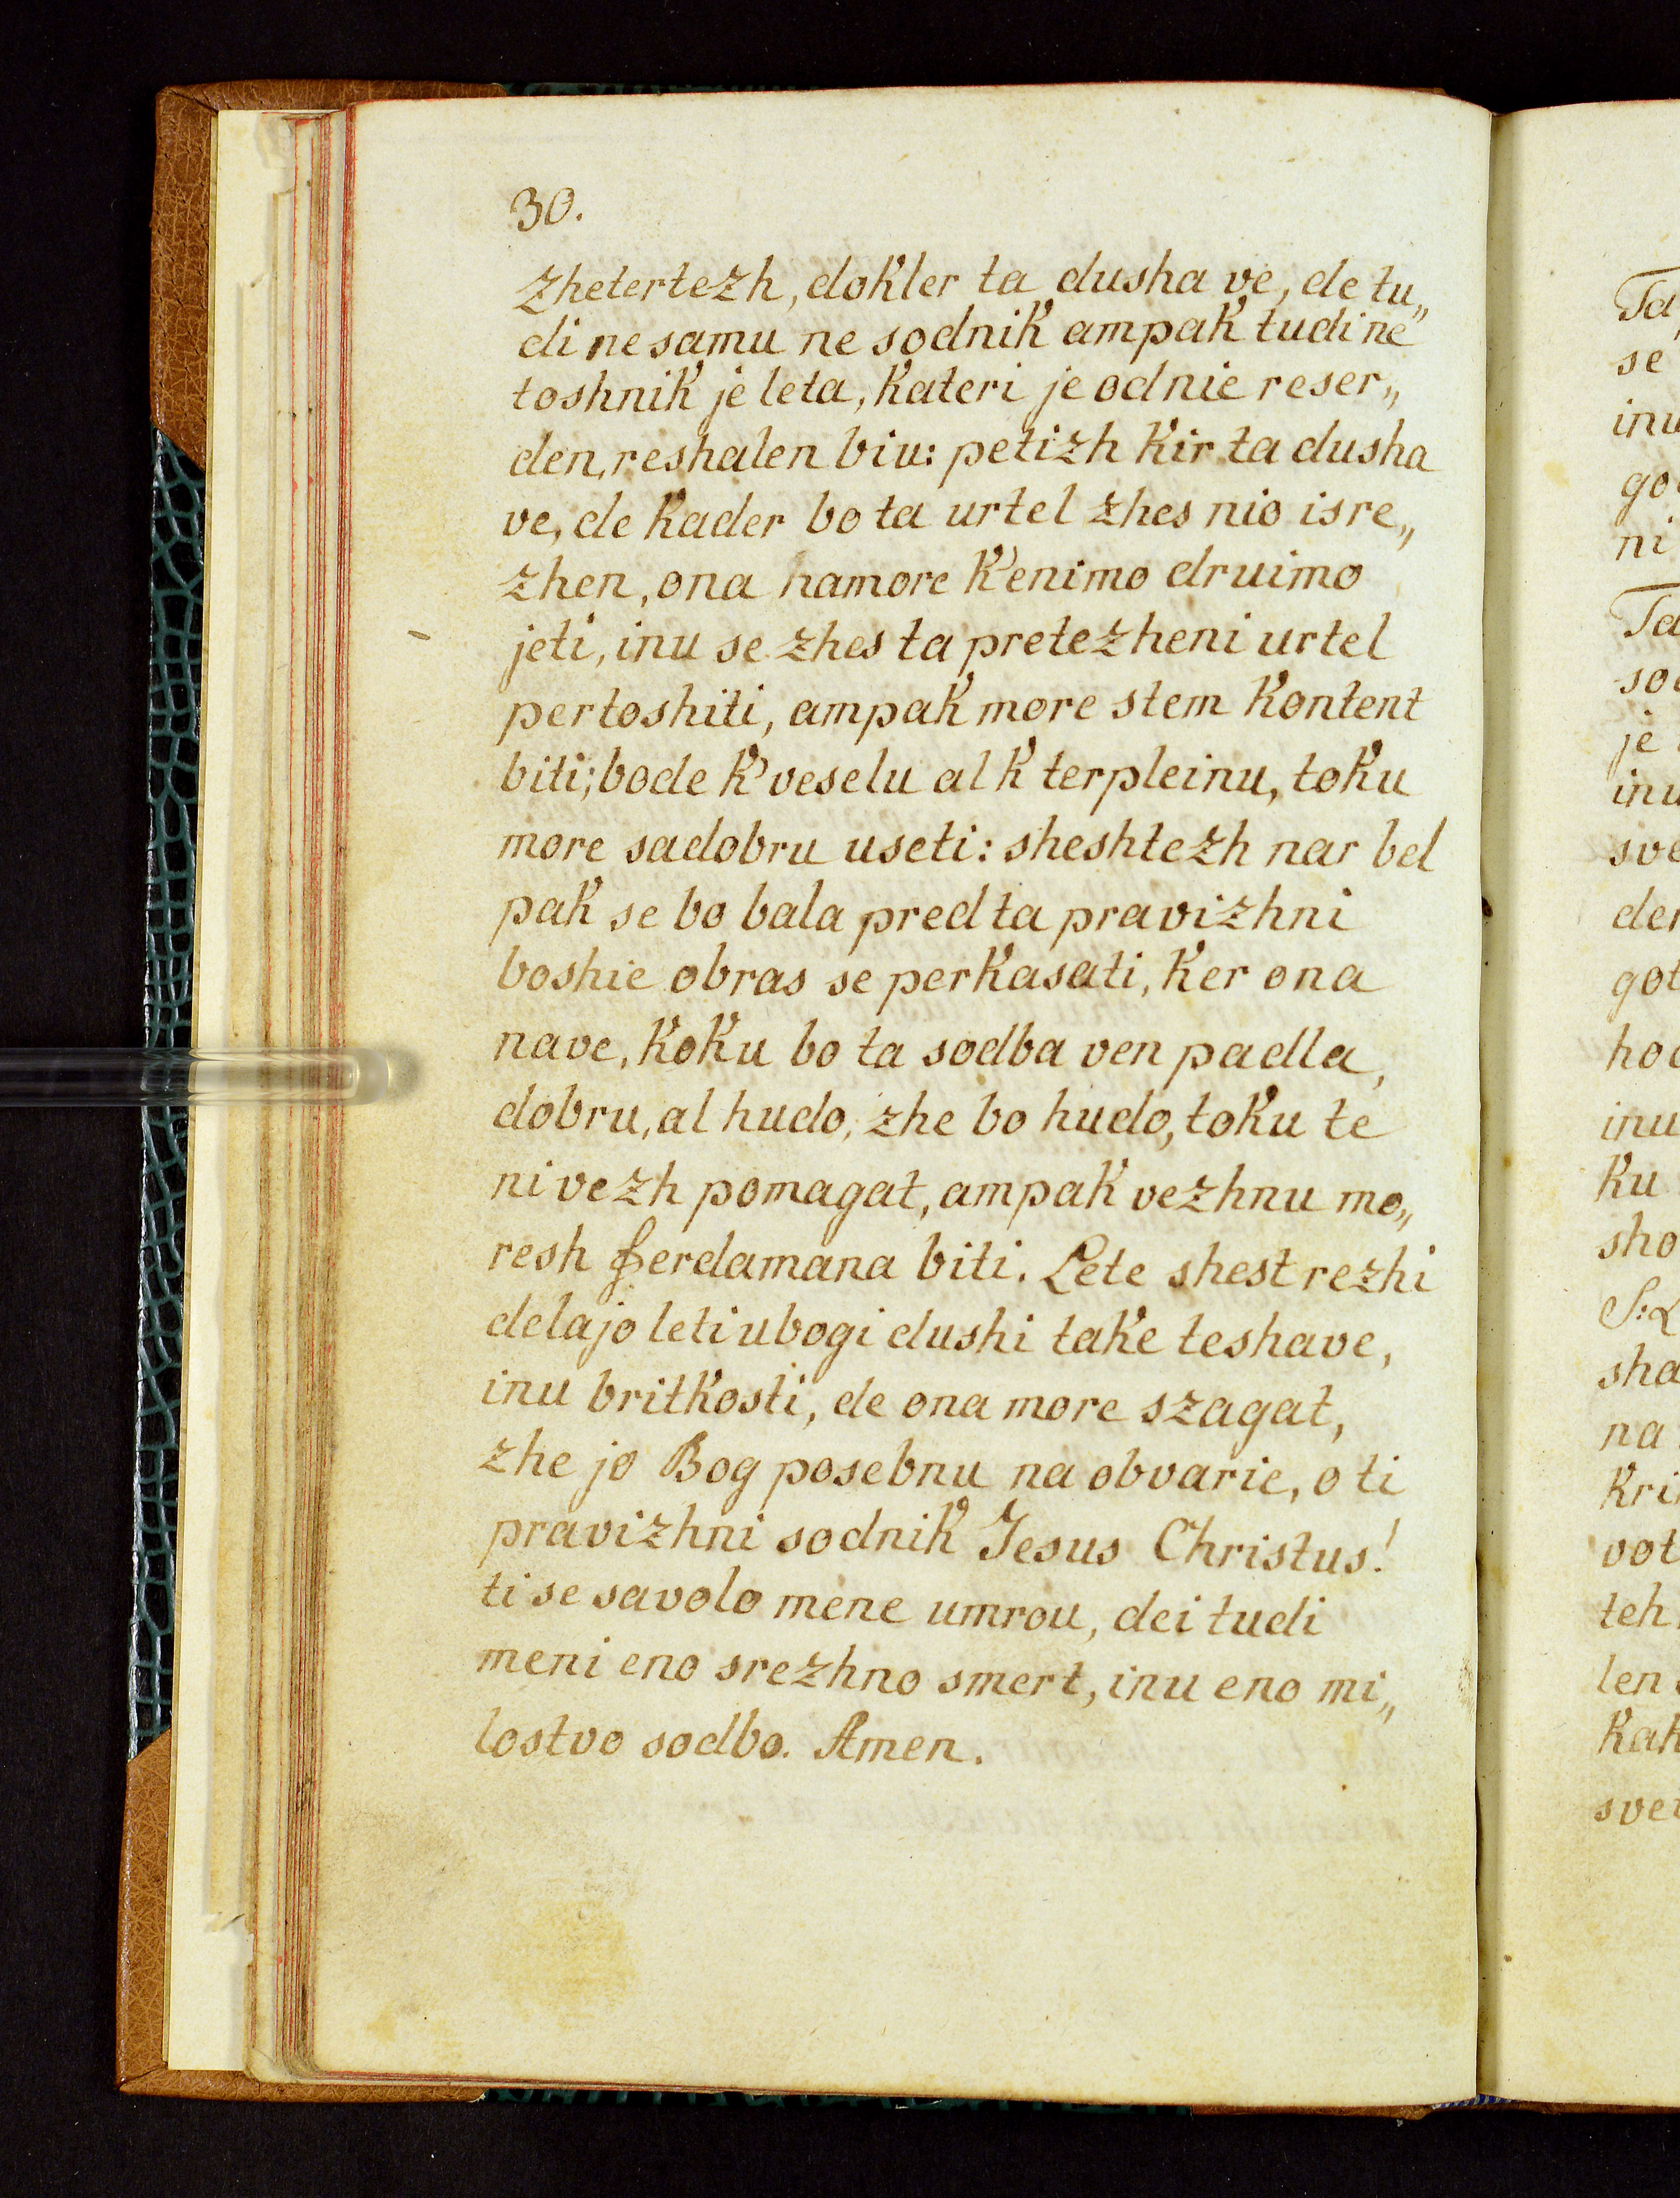 30.
zhetertezh, dokler ta dusha ve, de tu„
di ne samu ne sodnik ampak tudi ne
toshnik je leta, kateri je od nie reser„
den, reshalen biu: petizh kir ta dusha
ve, de kader bo ta urtel zhes nio isre„
zhen, ona namore k'enimo druimo
jeti, inu se zhes ta pretezheni urtel
pertoshiti, ampak more stem kontent
biti; bode k'veselu al k terpleinu, toku
more sadobru useti: sheshtezh nar bel
pak se bo bala pred ta pravizhni
boshie obras se perkasati, ker ona
nave, koku bo ta sodba ven padla,
dobru, al hudo, zhe bo hudo, toku te
ni vezh pomagat, ampak vezhnu mo„
resh ferdamana biti. Lete shest rezhi
delajo leti ubogi dushi take teshave,
inu britkosti, de ona more szagat,
zhe jo Bog posebnu na obvarie, o ti
pravizhni sodnik Jesus Christus!
ti se savolo mene umrou, dei tudi
meni eno srezhno smert, inu eno mi„
lostvo sodbo. Amen.
Ta
se
inu
go
ni
Ta
so
je
inu
sve
der
got
hoc
inu
ku
sho
sha
na
kri
vot
teh
len
kak
svet